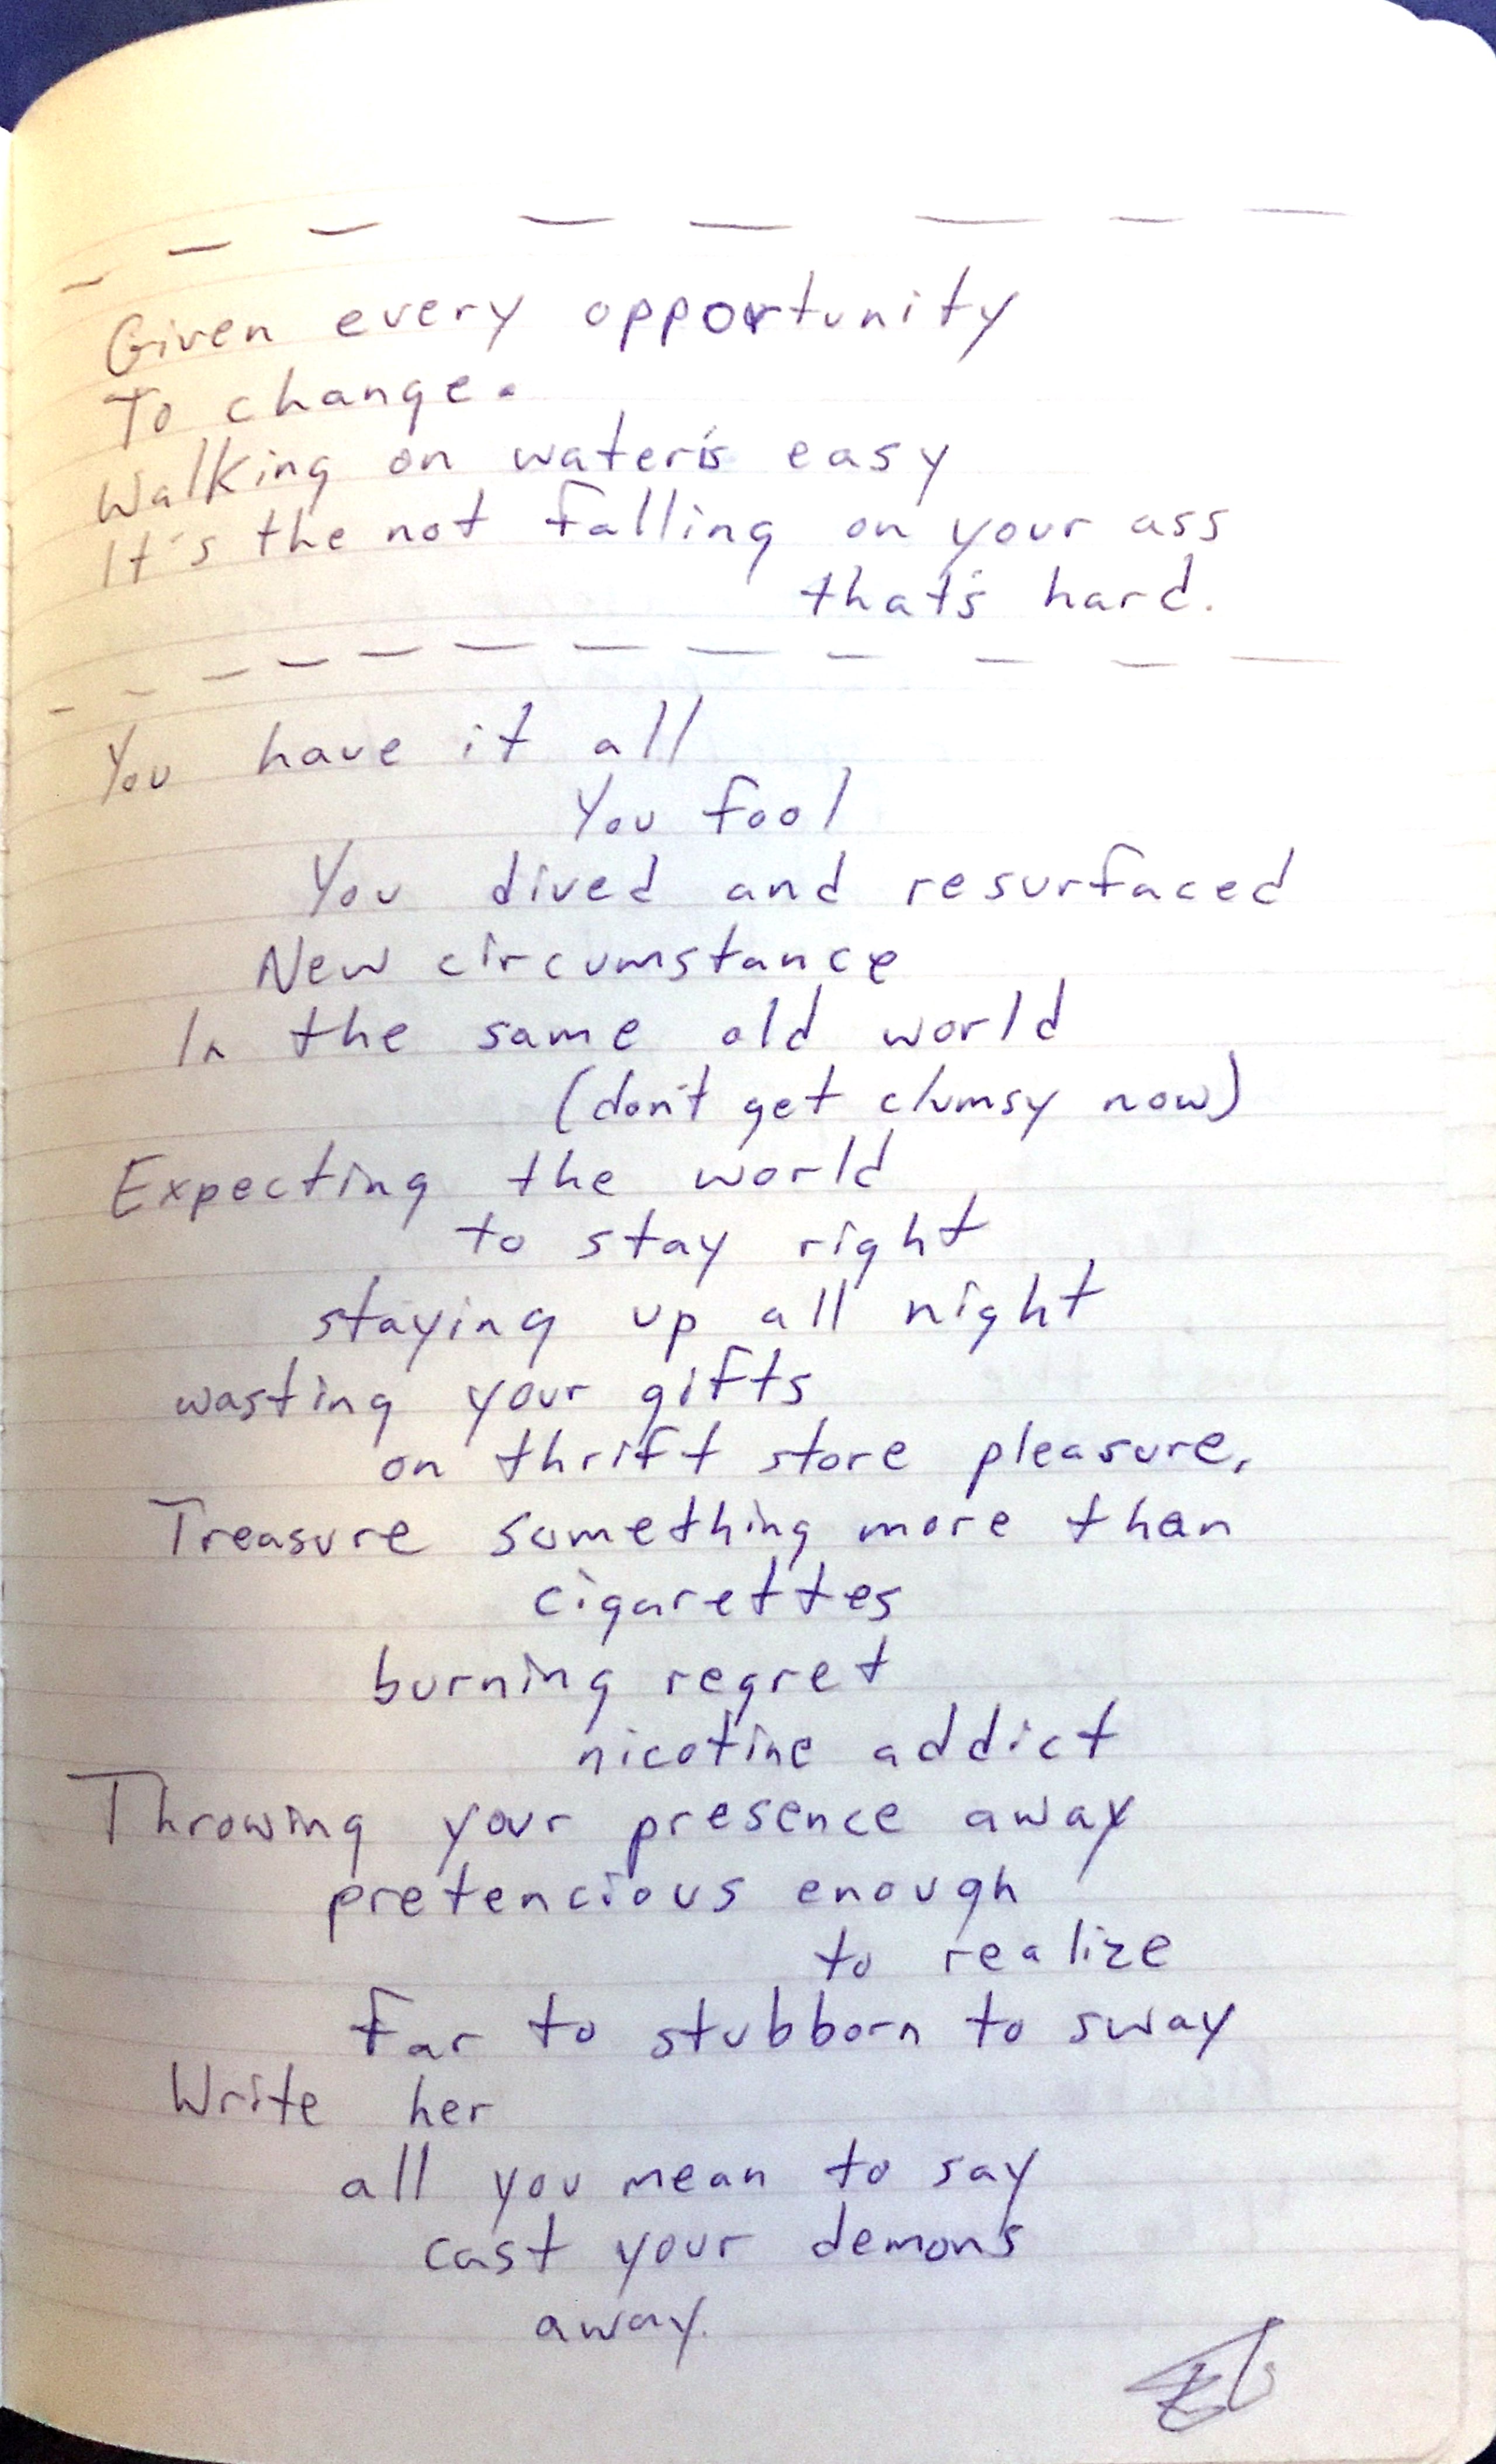 Given every opportunity
To change.
Walking on water's easy
It's the not falling on your ass
that's hard.
You have it all
You fool
You dived and resurfaced
New circumstance
In the same old world
(don't get clumsy now)
Expecting the world
to stay right
staying up all night
wasting your gifts
on thrift store pleasure,
Treasure something more than
cigarettes
burning regret
nicotine addict
Throwing your presence away
pretencious enough
to realize
far to stubborn to sway
Write her
all you mean to say
cast your demons
away.